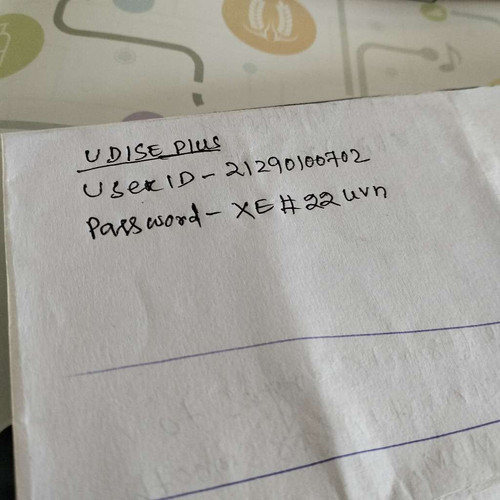 UDISE Plus
User ID - 21290100702
Password - XE#22uvn